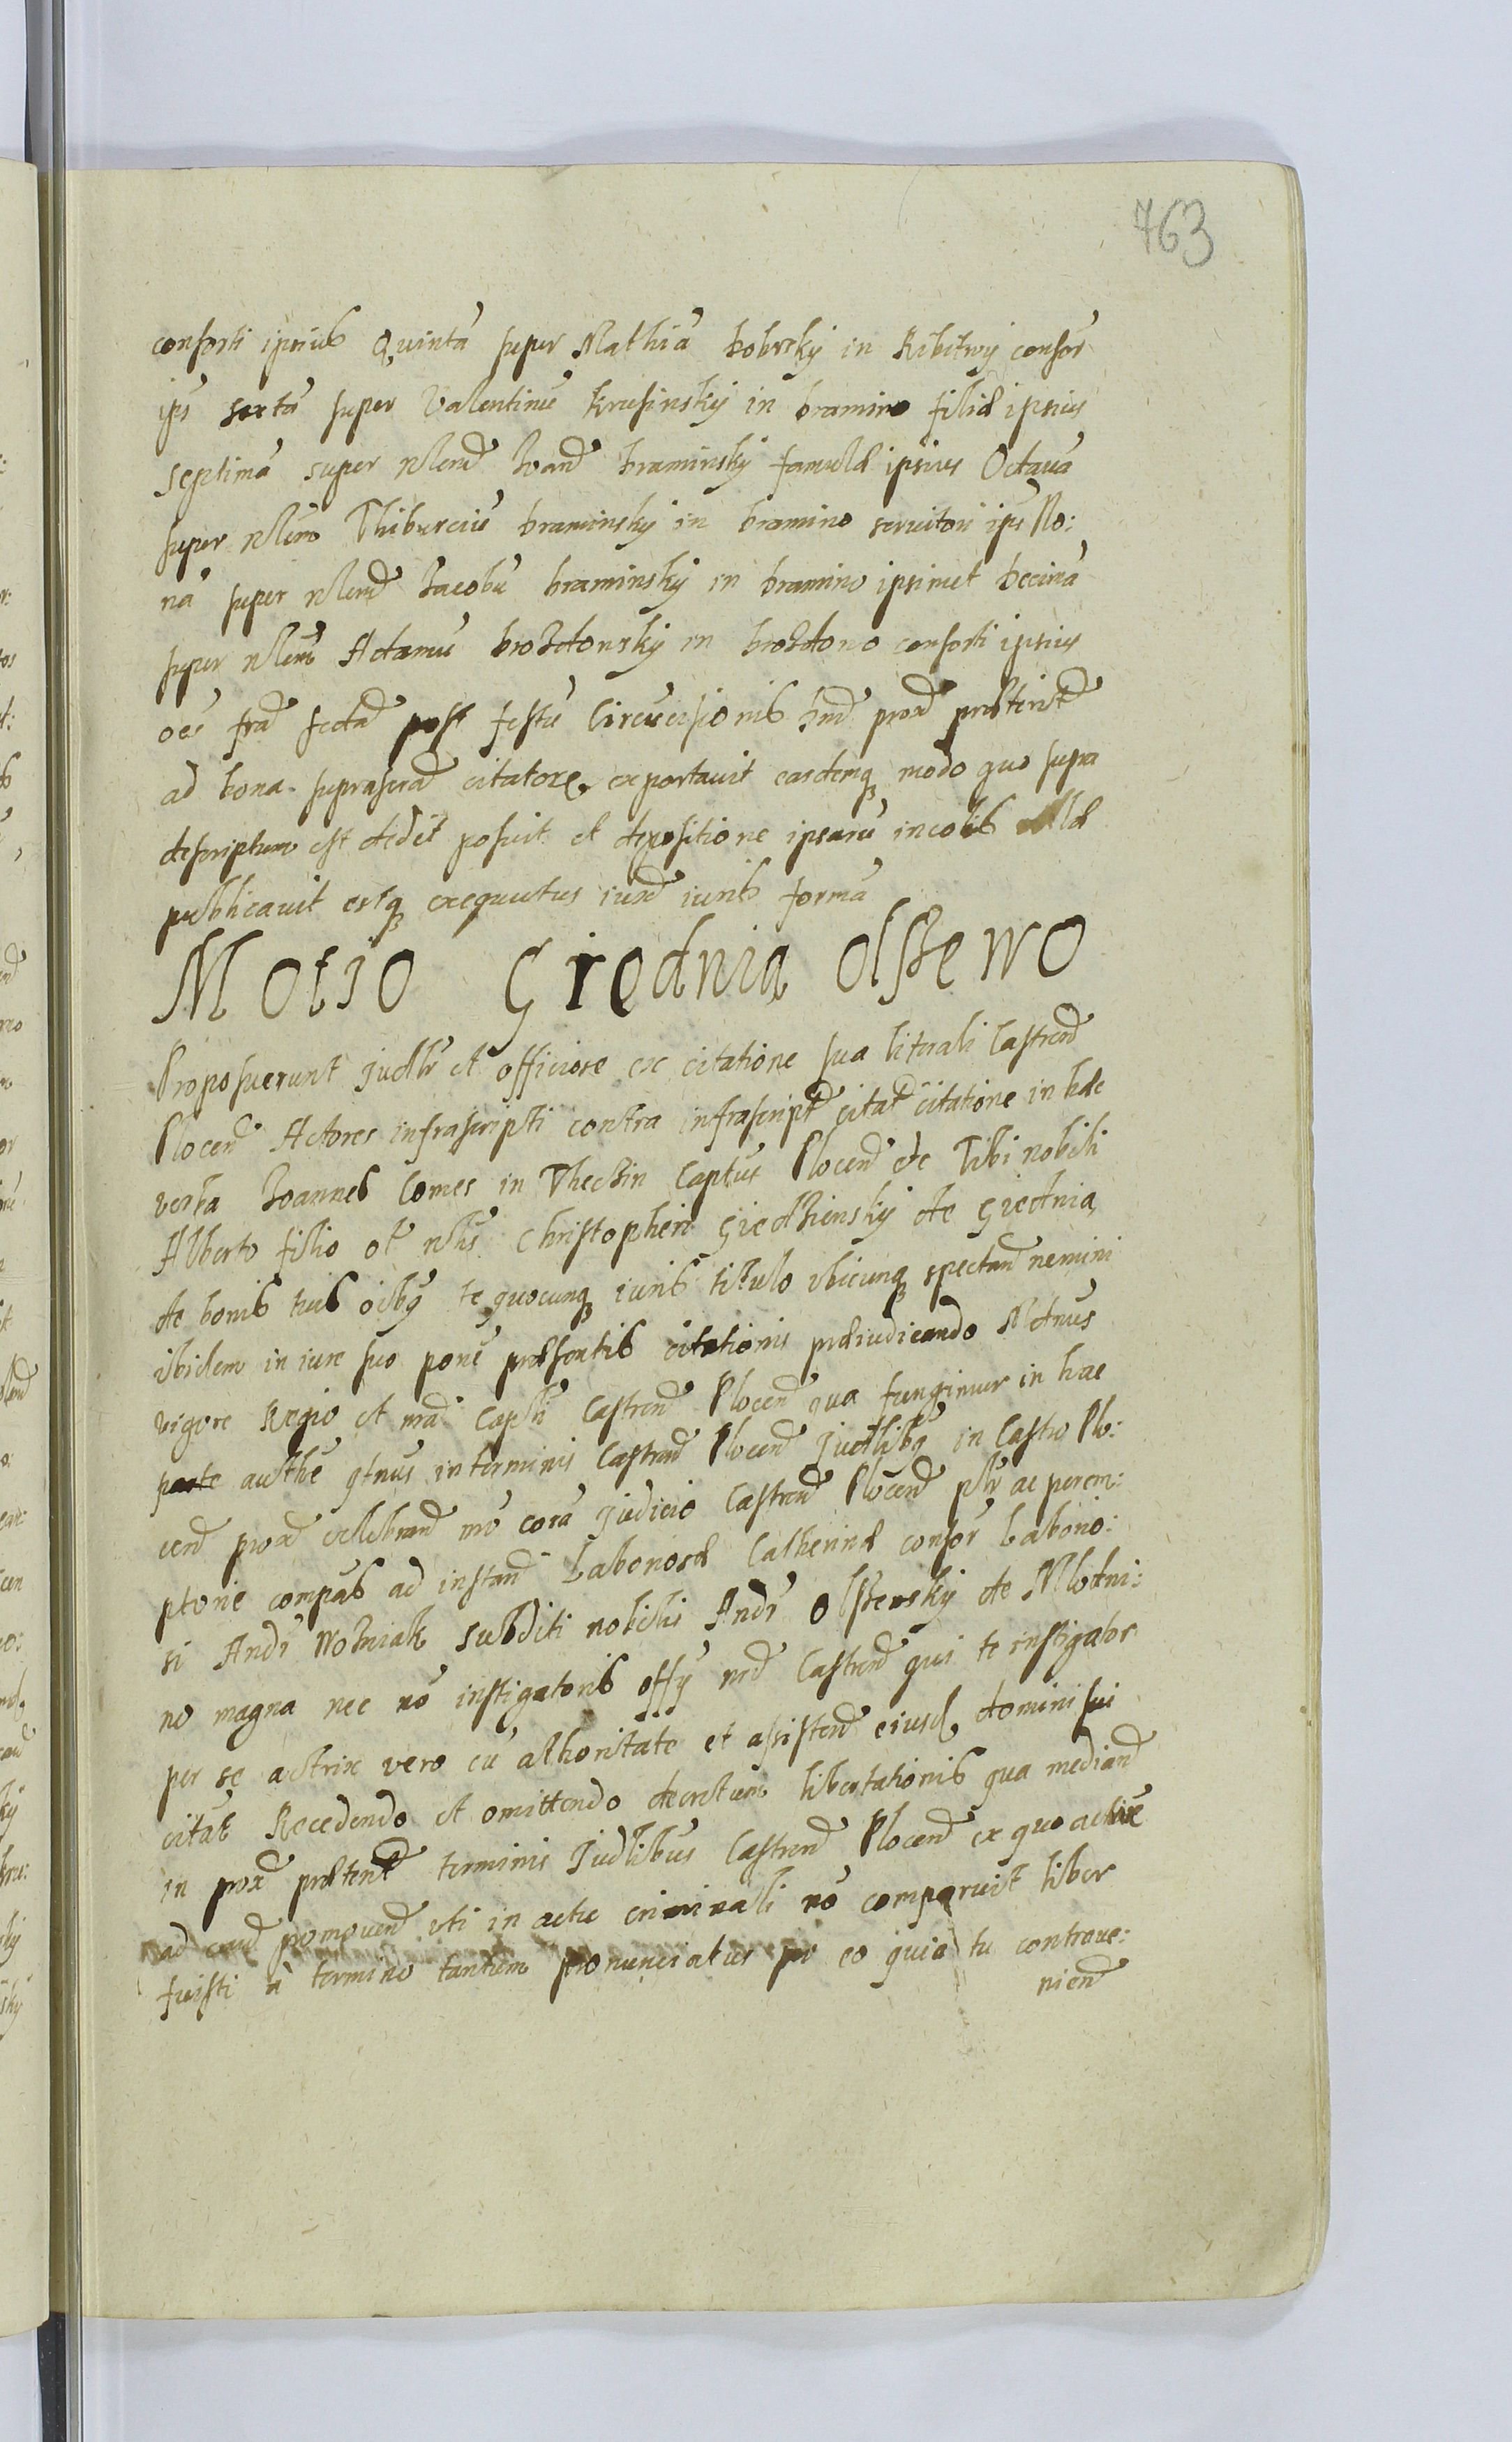 763
consorti ipsius Quintã super Mathiã bobrsky in Ribitwy consor
ips sextã super Valentinũ krusinsky in bramino filiæ ipsius
Septimã super nlem Ioan braminsky famulæ ipsius Octauã
super nlem Thiburciũ braminsky in bramino seruitori ips No:
nã super nlem Iacobũ braminsky in bramino ipsimet Decimã
super nlem Adamũ brozdowsky in brozdowo consorti ipsius
oẽs frã sectã post festũ Circũcisionis Dni prox præterit
ad bona suprascrã citatorũ exportauit easdemq modo quo supra
descriptum est dedit posuit et depositione ipsarũ incolis
publicauit estq exequutus iuxã iuris formã
Motio Giednia Olszewo
Proposuerunt Iudlr et officiose ex citatione sua literali Castren
Plocen Actores infrascripti contra infrascript citat citatione in hæc
verba Ioannes Comes in Theczin Captus Plocen etc Tibi nobili
Alberto filio ol nlis Christopheri Giedziensky de Giednia
de bonis tuis oibq te quocunq iuris titulo vbicunq spectan nemini
ibidem in iure suo pone præsentis citationis præiudicando Mdmus
vigore Regio et mad Captli Castren Plocen qua fungimur in hac
parte authe qtnus in terminis Castren Plocen Iudlibq in Castro Plo:
cen prox celebran mõ corã Iudicio Castren Plocen plr ac perem:
ptorie compas ad instan Laboriosæ Catherinæ consor Laborio:
si Andr Wozniak subditi nobilis Andr Olszewsky de Mlodni:
no magna nec nõ instigatoris offy nri Castren qui te instigator
per se actrix vero cũ athoritate et assisten eiusd domini sui
citat Recedendo et omittendo decretum libertationis qua median
in prox præterit terminis Iudlibus Castren Plocen ex quo actrix
ad eand promouend vti in actu criminali nõ comparuit liber
fuisti a termino tantum pronunciatus pro eo quia tu controue:
nien